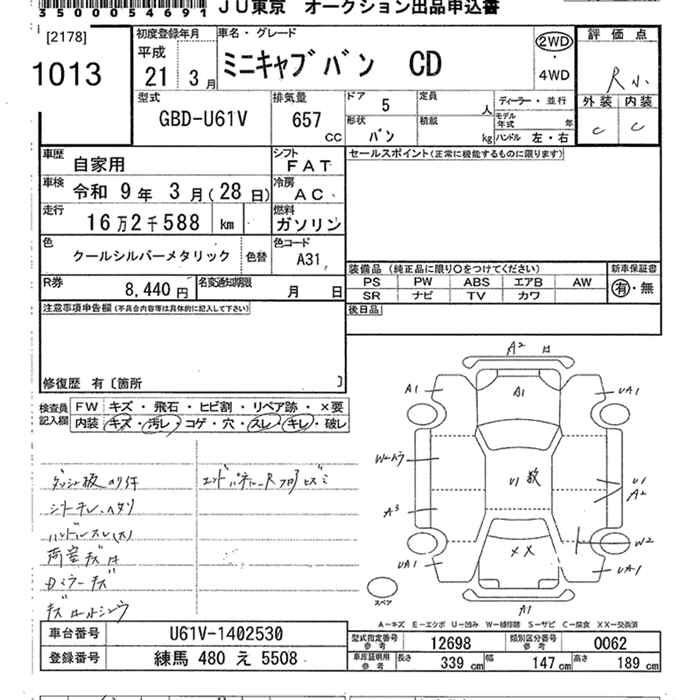 3500054691 JU東京 オークション出品申込書
[2178]
1013
初度登録年月
平成
21 3月
車名・グレード
ミニキャブバン CD
2WD
・
4WD
評価点
R
外装 内装
C C
型式
GBD-U61V
排気量
657
CC
ドア 5
定員 人
形状
バン
積載 kg
ディーラー・並行
モデル年式 年
ハンドル 左・右
車歴
自家用
シフト
FAT
セールスポイント(正常に機能するものに限ります)
車検
令和 9年 3月(28日)
冷房
AC
走行
16万2千588 km
燃料
ガソリン
色
クールシルバーメタリック
色替
色コード
A31
装備品 (純正品に限り○をつけてください)
新車保証書
有・無
PS PW ABS エアB AW
SR ナビ TV カワ
R券
8,440円
名変通知期限
月 日
後日品
注意事項申告欄(不具合内容等は具体的に記入して下さい)
修復歴 有〔箇所 〕
検査員記入欄
FW キズ・飛石・ヒビ割・リペア跡・×要
内装 キズ・汚レ・コゲ・穴・スレ・キレ・破レ
シートキレ、ヘタリ
ハンドルスレ(大)
荷室キズ
A2
A1 A1 UA1
A3 U1 A2
UA1 XX W2
UA1
A1
スペア
A-キズ E-エクボ U-凹み W-補修跡 S-サビ C-腐食 XX-交換済
車台番号 U61V-1402530
登録番号 練馬 480 え 5508
型式指定番号参考 12698
類別区分番号参考 0062
車庫証明用参考 長さ 339cm 幅 147cm 高さ 189cm